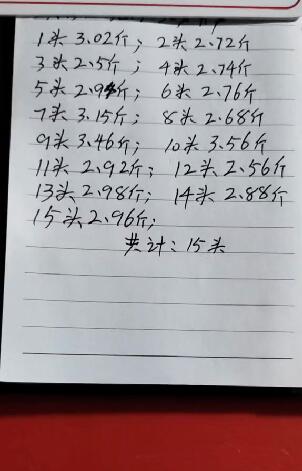 1头 3.02斤; 2头 2.72斤
3头 2.5斤; 4头 2.74斤
5头 2.94斤; 6头 2.76斤
7头 3.15斤; 8头 2.68斤
9头 3.46斤; 10头 3.56斤
11头 2.92斤; 12头 2.56斤
13头 2.98斤; 14头 2.88斤
15头 2.96斤;
共计: 15头